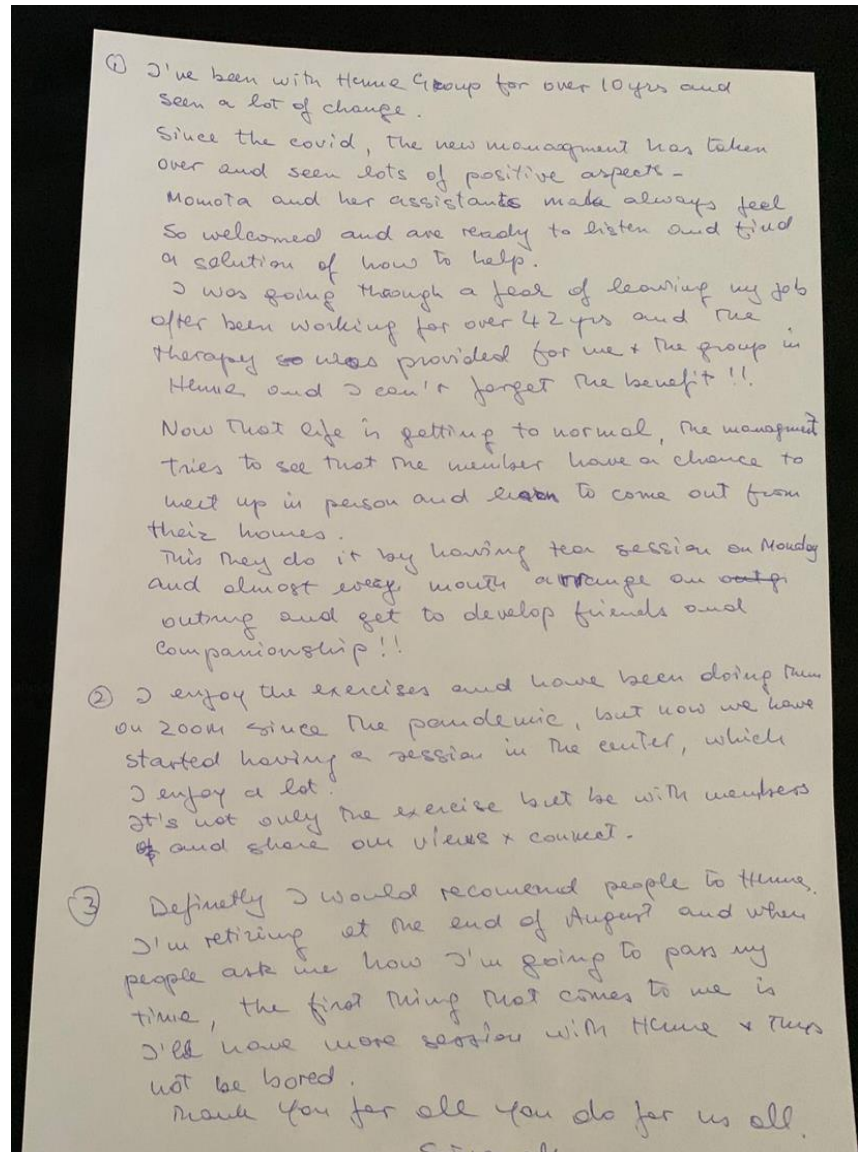 ① I've been with Henna Group for over 10yrs and
seen a lot of change.
Since the covid, the new managment has taken
over and seen lots of positive aspects -
Momota and her assistants make always feel
So welcomed and are ready to listen and find
a solution of how to help.
I was going through a fear of leaving my job
after been working for over 42 yrs and the
therapy was provided for me & the group in
Henna and I can't forget the benefit !!
Now that life is getting to normal, the managment
tries to see that the member have a chance to
meet up in person and learn to come out from
their homes.
This they do it by having tea session on Monday
and almost every month arrange an
outing and get to develop friends and
Companionship !!
② I enjoy the exercises and have been doing them
on zoom since the pandemic, but now we have
started having a session in the center, which
I enjoy a lot.
It's not only the exercise but be with members
and share our views & connect -
③ Definetly I would recomend people to Henna.
I'm retiring at the end of August and when
people ask me how I'm going to pass my
time, the first thing that comes to me is
I'll have more session with Henna & thus
not be bored.
Thank you for all you do for us all.